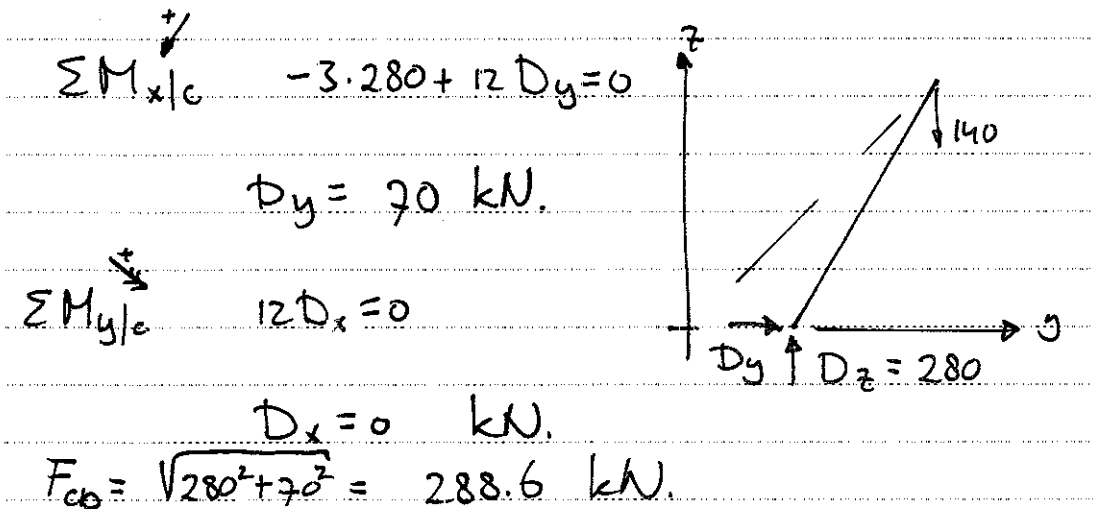 +
ΣM_x|c -3·280 + 12 Dy = 0
Dy = 70 kN.
+
ΣM_y|c 12Dx = 0
Dx = 0 kN.
F_CD = √(280² + 70²) = 288.6 kN.
z
140
y
Dy Dz = 280